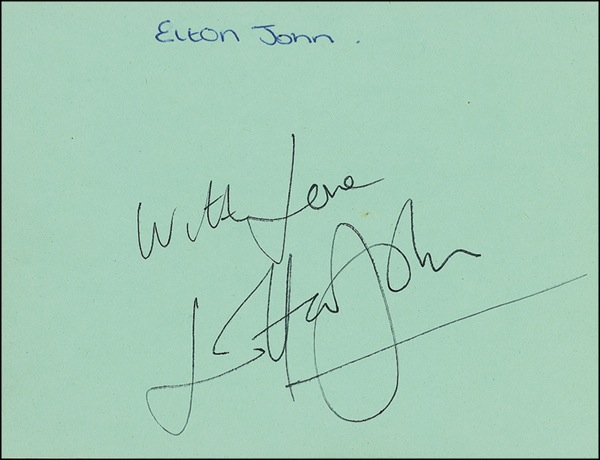 Elton John.
With love
Elton John